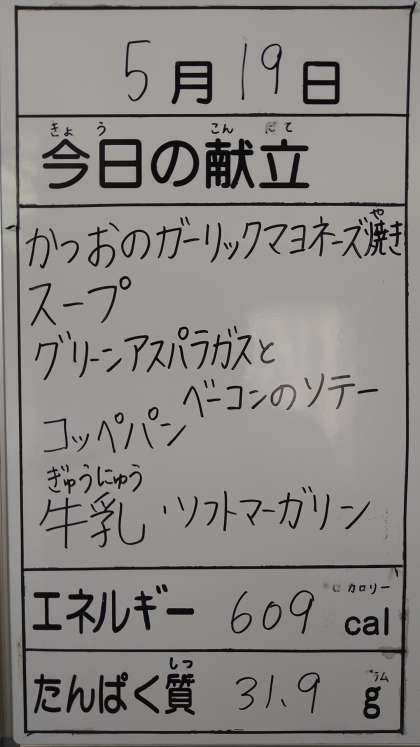 5月19日
きょう こんだて
今日の献立
や
かつおのガーリックマヨネーズ焼き
スープ
グリーンアスパラガスと
ベーコンのソテー
コッペパン
ぎゅうにゅう
牛乳・ソフトマーガリン
カロリー
エネルギー 609 cal
しつ
たんぱく質 31.9 g